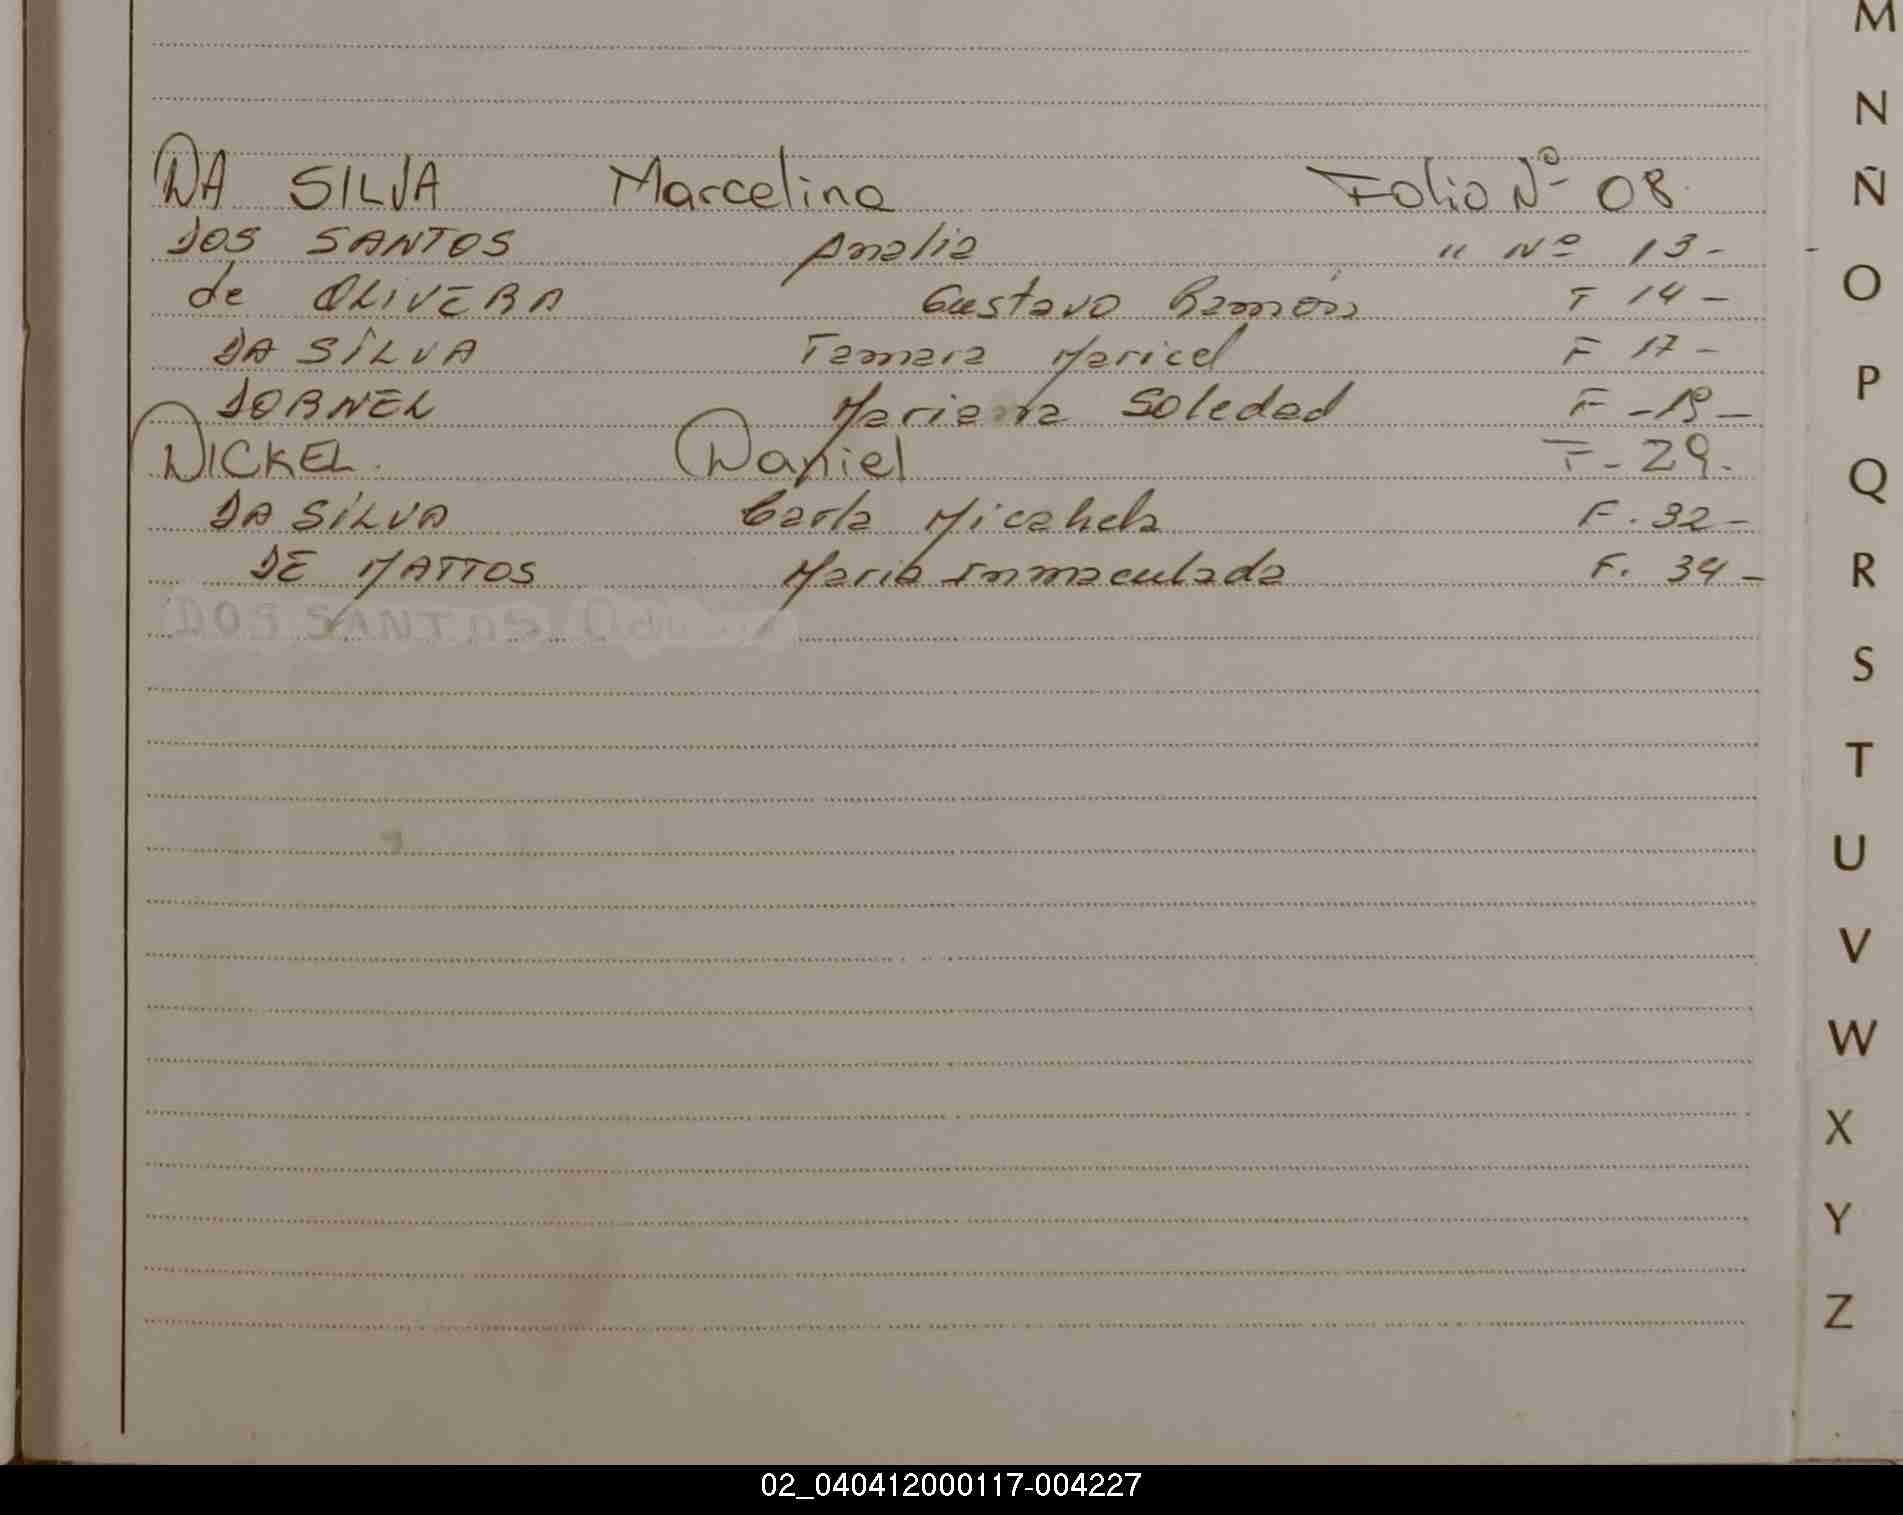 DA SILVA Marcelina Folio Nº 08
DOS SANTOS Analia " Nº 13-
de OLIVERA Gustavo Ramón F 14-
DA SILVA Tamara Maricel F 17-
DORNEL Mariana Soledad F-19-
DICKEL. Daniel F-29.
DA SILVA Carla Micahela F. 32-
DE MATTOS Maria Inmaculada F. 34-
DOS SANTOS
M
N
Ñ
O
P
Q
R
S
T
U
V
W
X
Y
Z
02_040412000117-004227